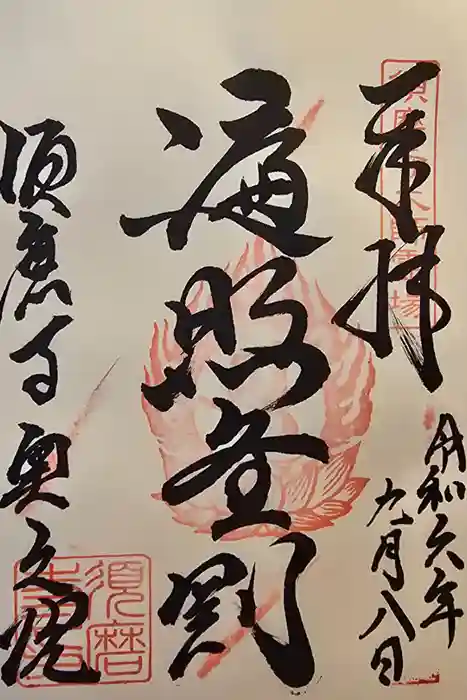 奉拝
令和六年
九月八日
遍照金剛
須磨寺奥之院
須磨
寺印